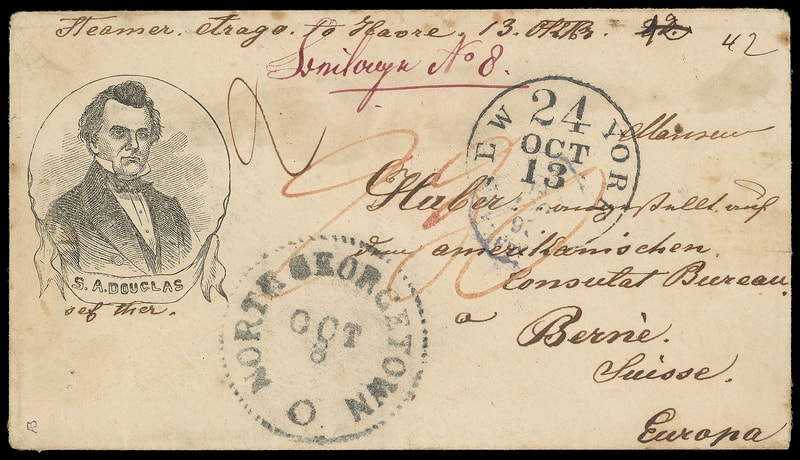 Steamer. Arago. to Havre, 13. Oktb.
42
Beilage No 8.
NEW YORK
24
OCT
13
Monsieur
Huber angestellt auf
dem amerikanischen
Consulat Bureau
a
Berne.
Suisse.
Europa
2
S. A. DOUGLAS
NORTH GEORGETOWN O
OCT
8